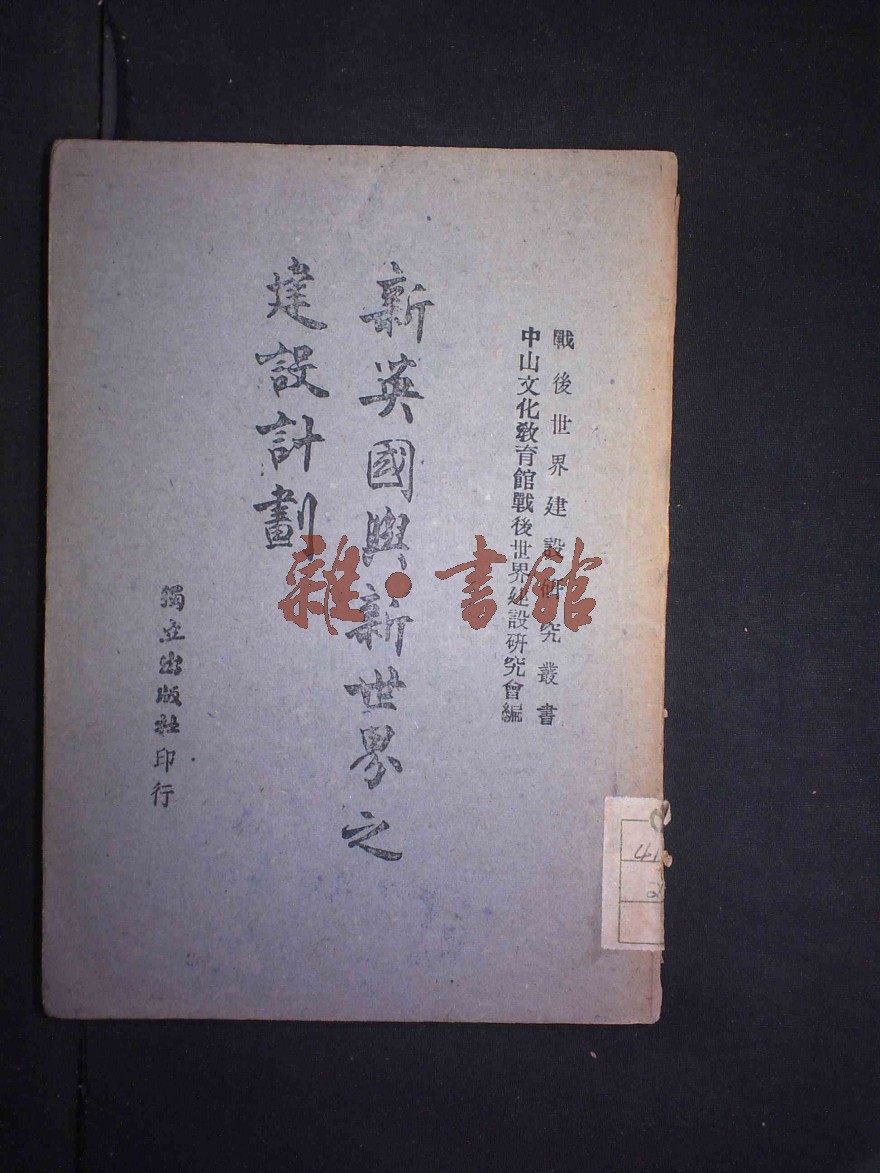 戰後世界建設研究叢書
中山文化教育館戰後世界建設研究會編
新英國與新世界之
建設計劃
獨立出版社印行
雜·書館